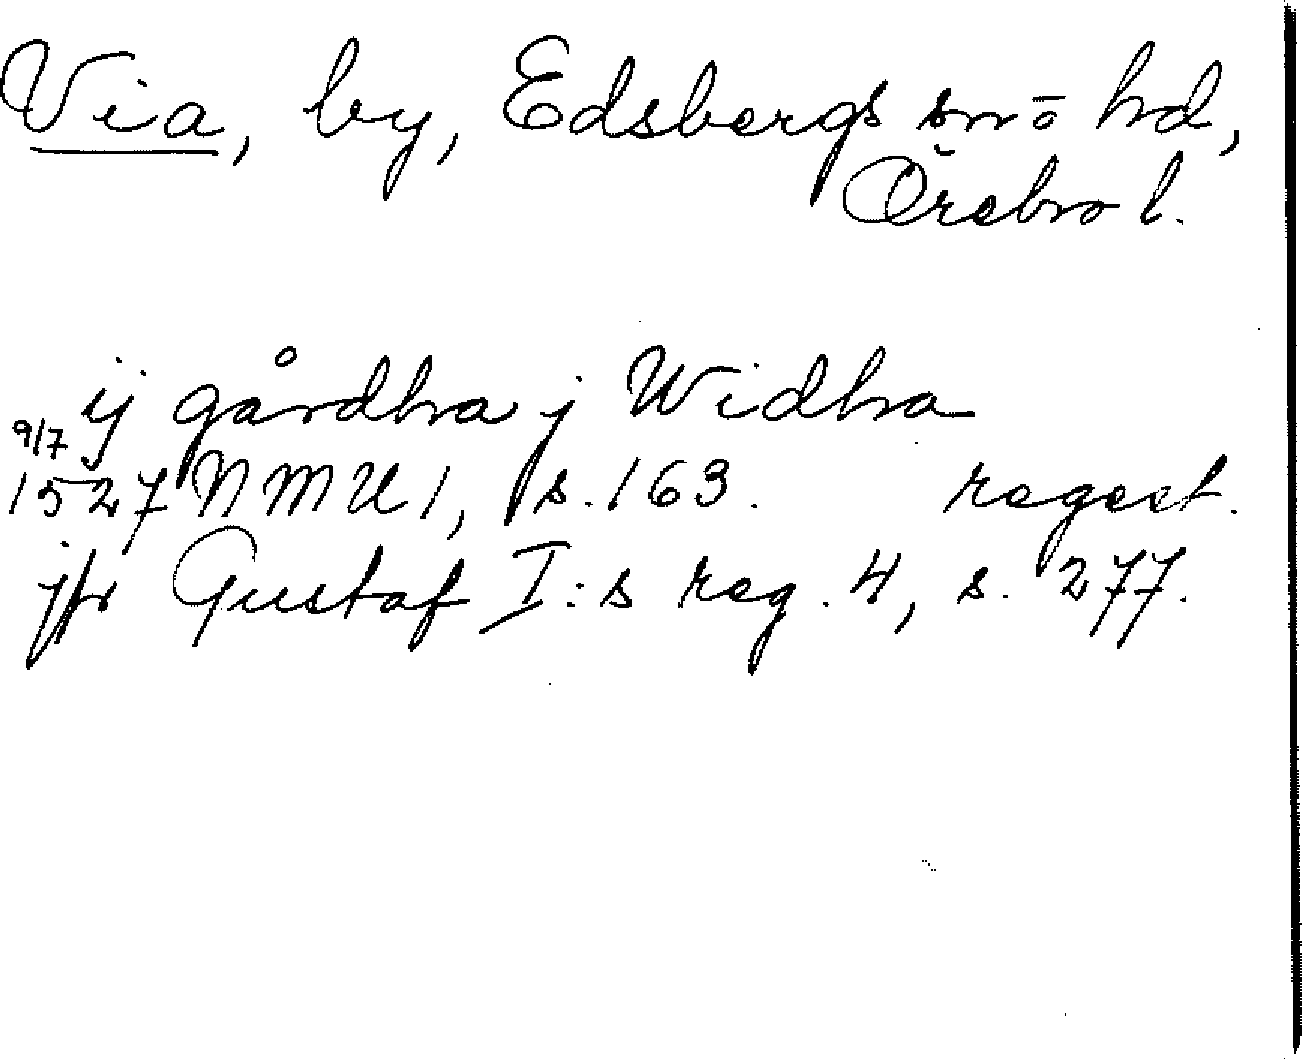 Via, by, Edsbergs sn o hd,
Örebro l.
ij gårdhra j Widhra
9/7
1527 NMU 1, s. 163. regest.
jfr Gustaf I:s reg. 4, s. 277.